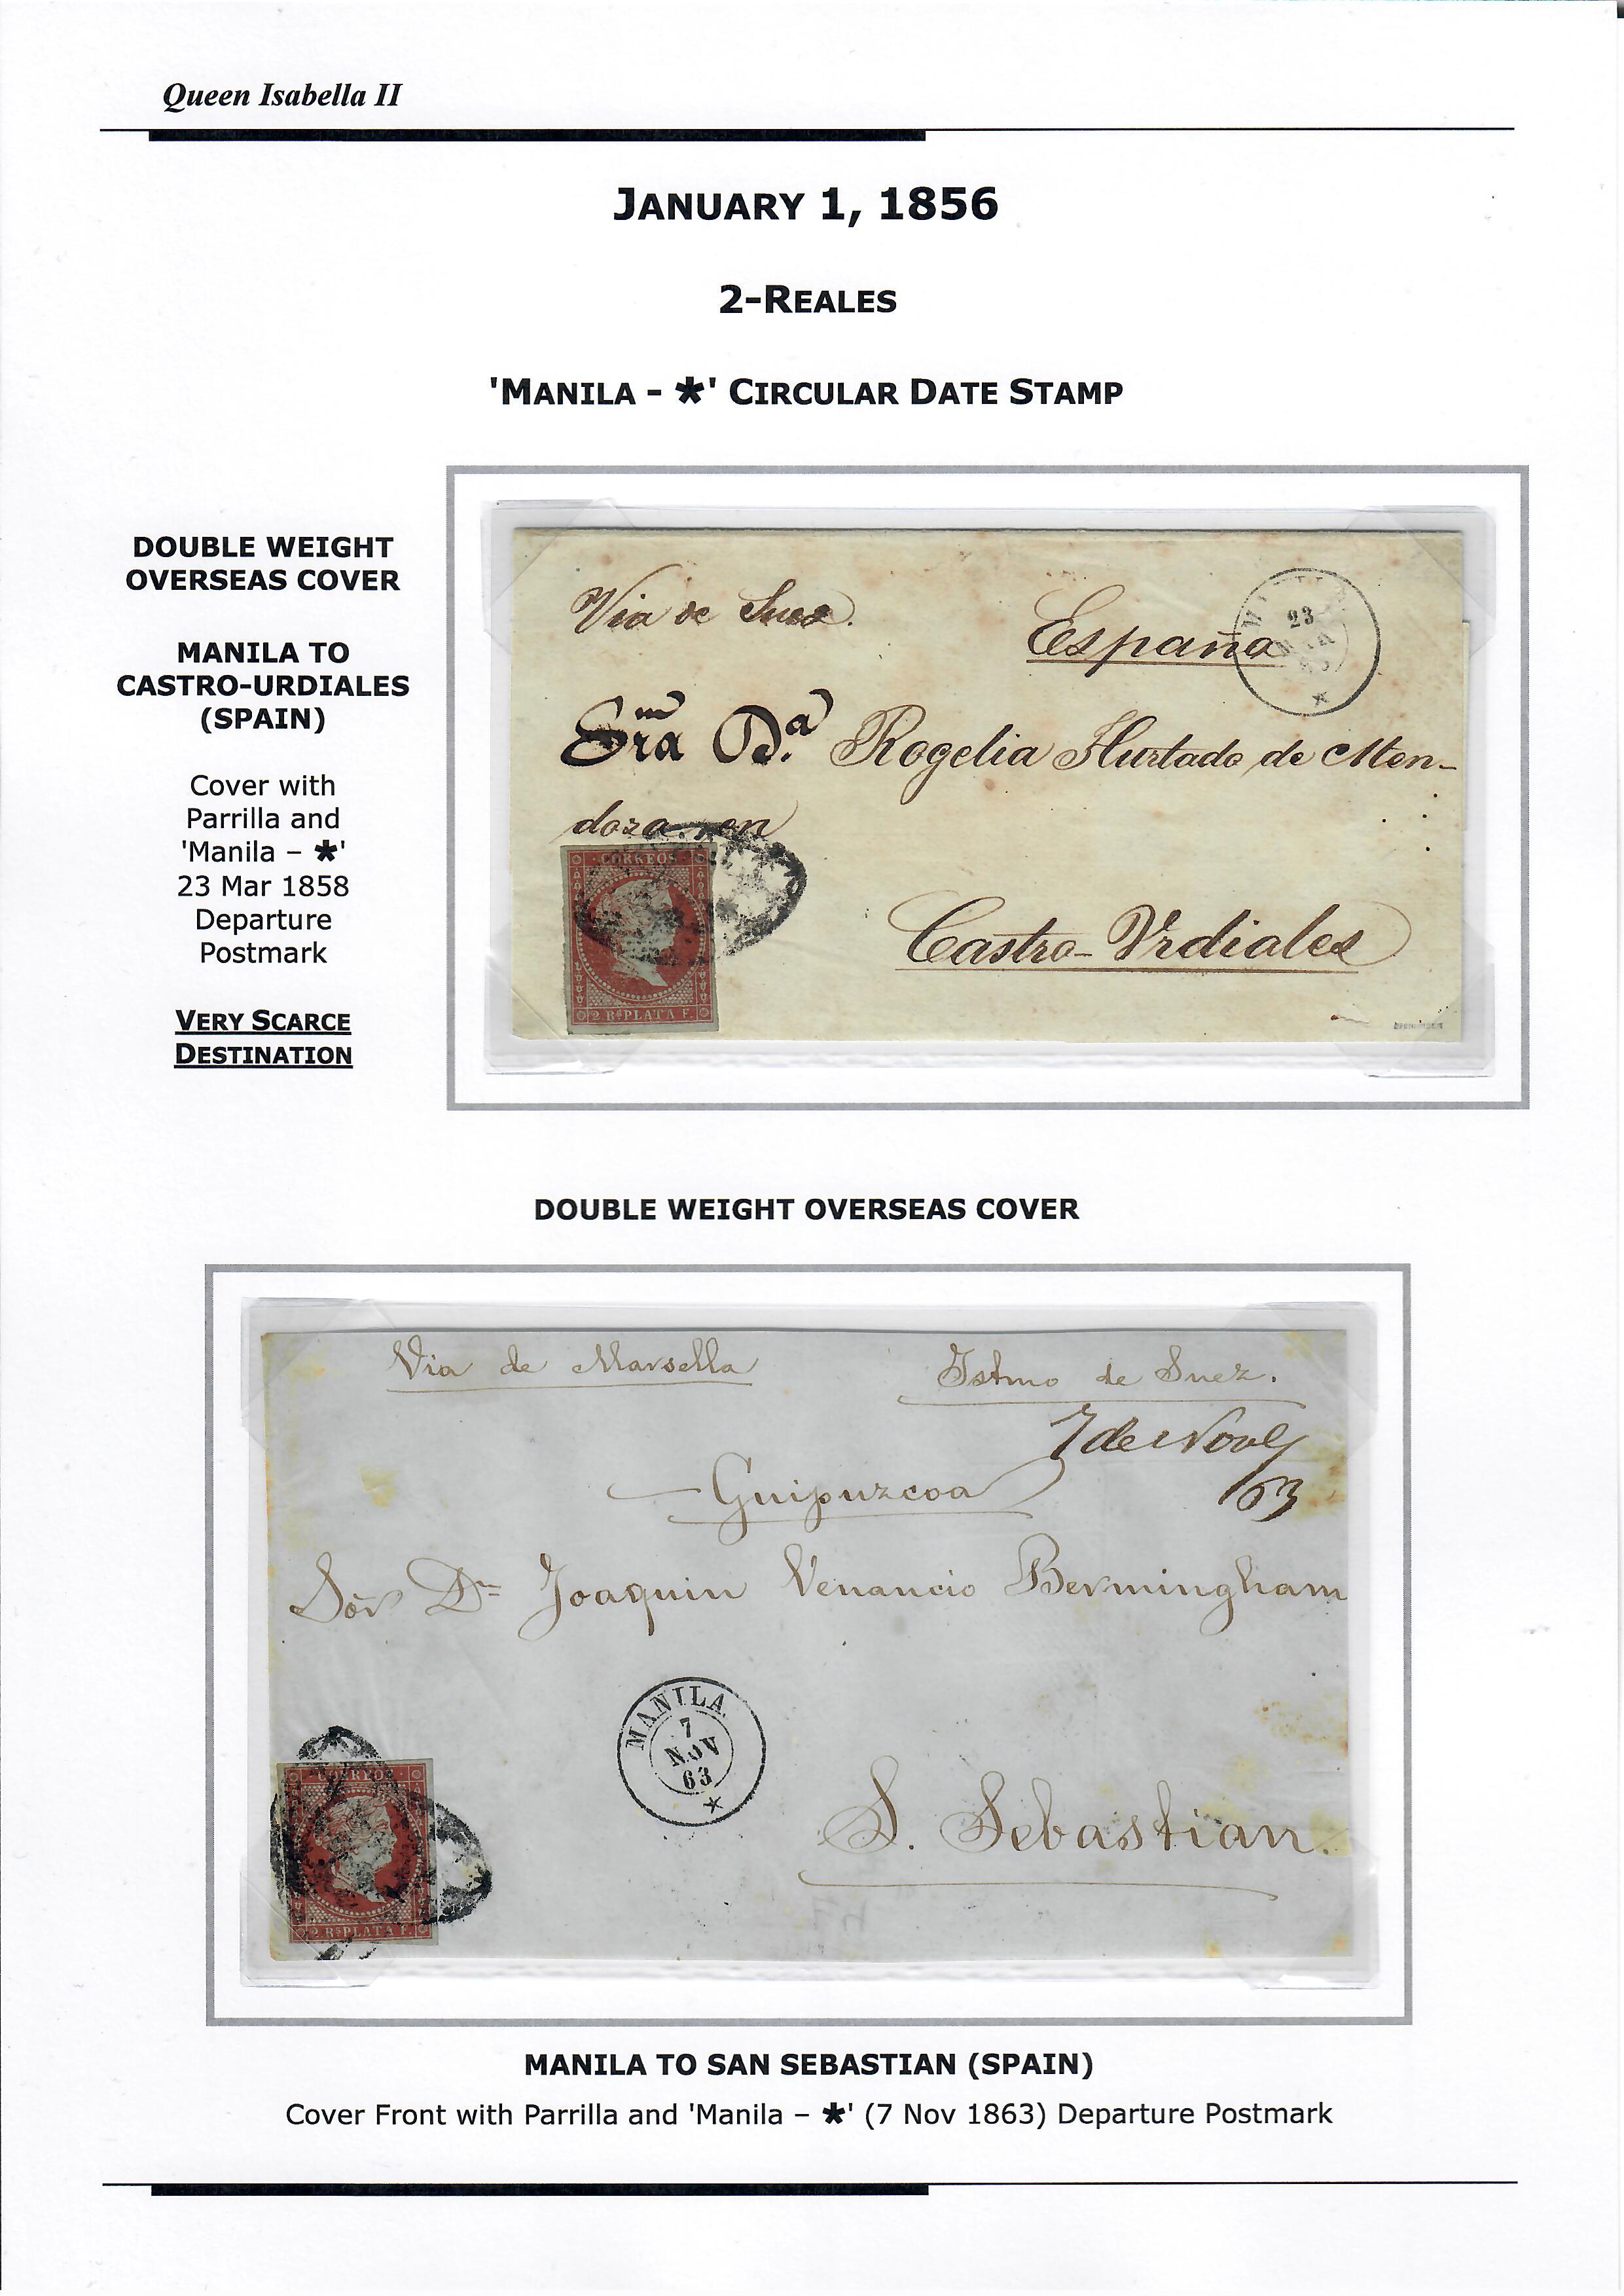 Queen Isabella II
JANUARY 1, 1856
2-REALES
'MANILA - *' CIRCULAR DATE STAMP
DOUBLE WEIGHT
OVERSEAS COVER
MANILA TO
CASTRO-URDIALES
(SPAIN)
Cover with
Parrilla and
'Manila – *'
23 Mar 1858
Departure
Postmark
VERY SCARCE
DESTINATION
Via de Suez.
España
23
Sra Dª Rogelia Hurtado de Men-
doza en
CORREOS
2 Rs PLATA F.
Castro-Urdiales
DOUBLE WEIGHT OVERSEAS COVER
Via de Marsella
Istmo de Suez.
7 de Nove
/63
Guipuzcoa
Sōr Dn Joaquin Venancio Bermingham
MANILA
7
NOV
63
*
S. Sebastian.
CORREOS
2 Rs PLATA F.
MANILA TO SAN SEBASTIAN (SPAIN)
Cover Front with Parrilla and 'Manila – *' (7 Nov 1863) Departure Postmark